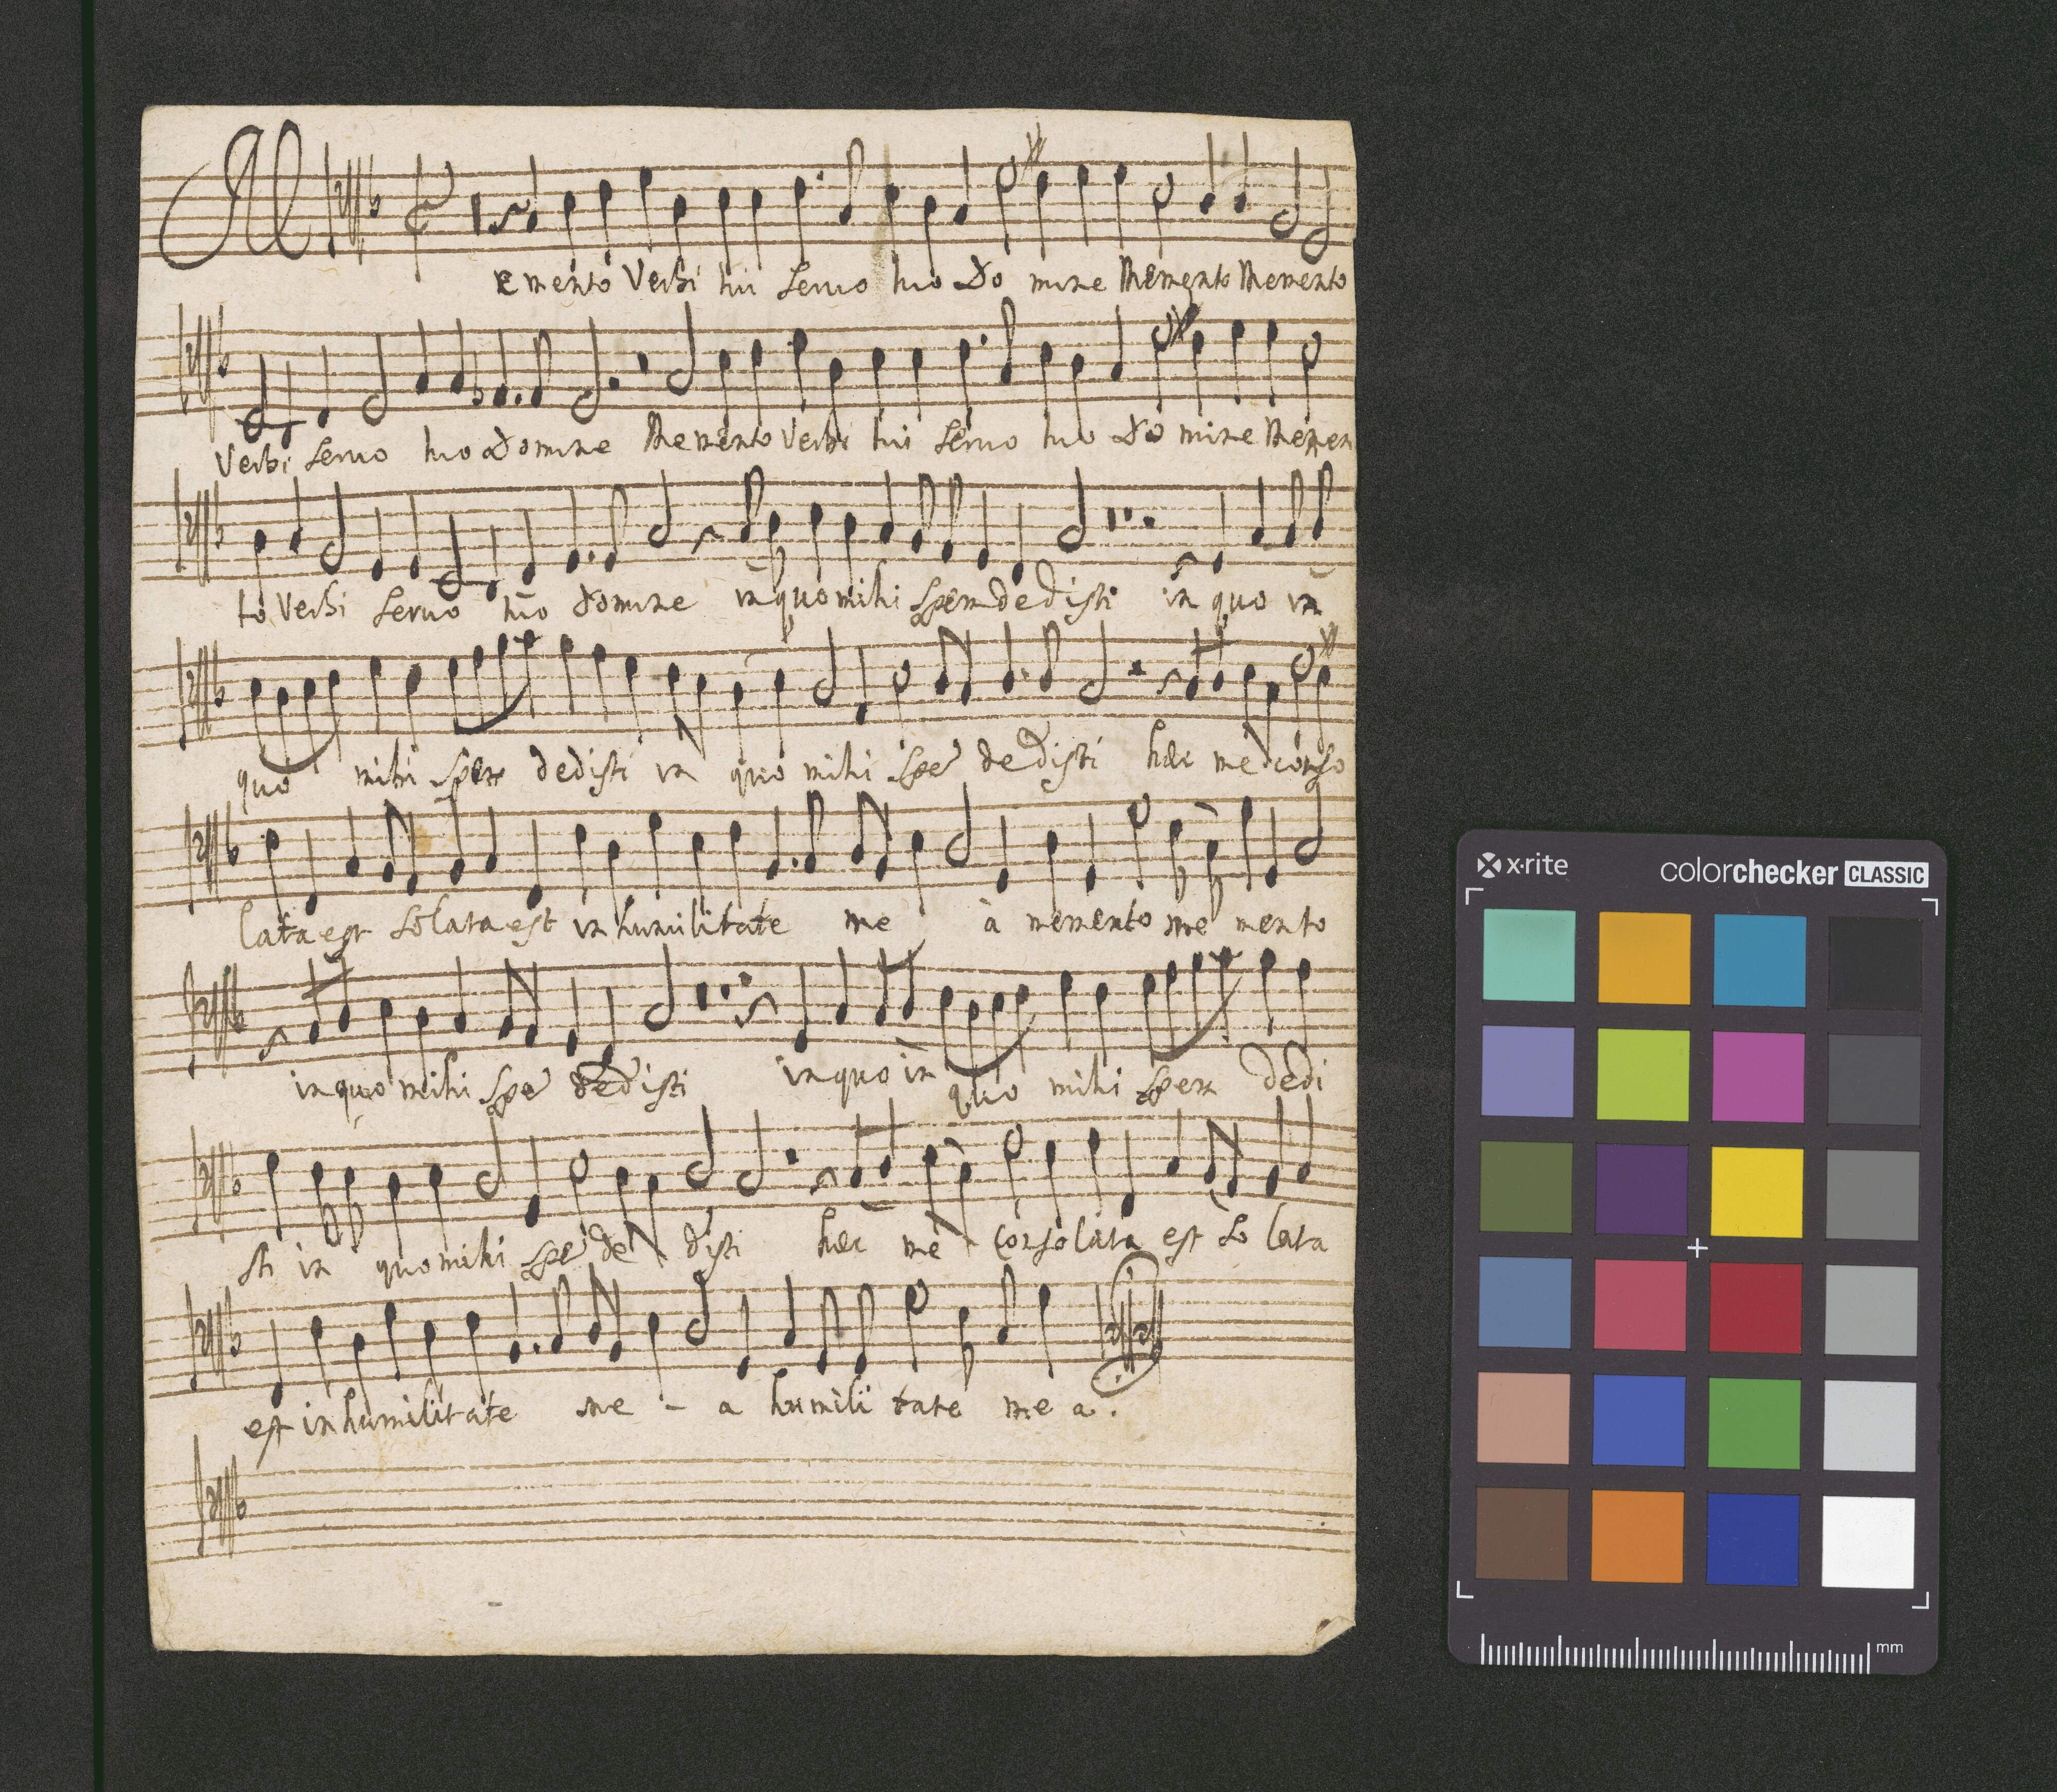 Memento Verbi tui Seruo tuo Do mine Memento Memento
Verbi Seruo tuo Domine Memento Verbi tui Seruo tuo Do mine Memen
to Verbi Seruo tuo domine in quo mihi Spem dedisti in quo in
quo mihi Spem dedisti in quo mihi Spē dedisti hæc me conso
lata est Solata est in humilitate me à memento me mento
in quo mihi Spē dedisti in quo in quo mihi Spem dedi
sti in quo mihi Spē de disti hæc me Consolata est So lata
est in humilitate me - a humili tate me a.
x·rite
colorchecker CLASSIC
mm